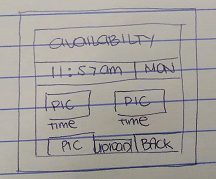 AVAILABILTY
11:57am MON
PIC PIC
time time
PIC upload BACK